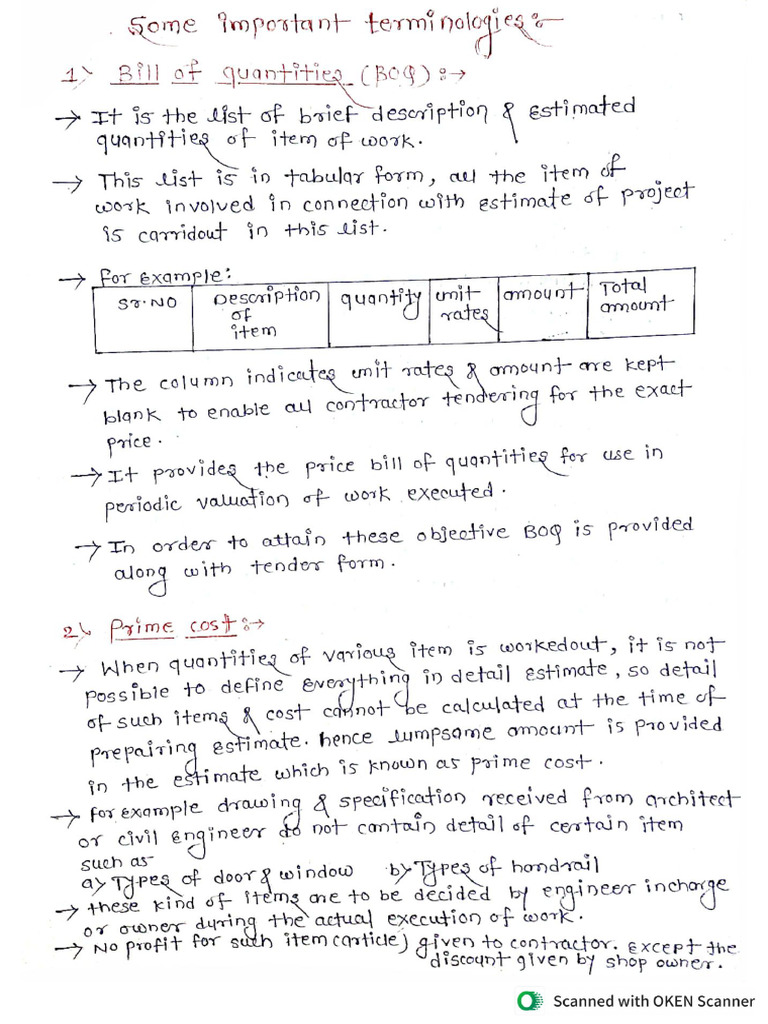 Some important terminologies:-
1) Bill of quantities (BOQ):→
→ It is the list of brief description & estimated
quantities of item of work.
→ This list is in tabular form, all the item of
work involved in connection with estimate of project
is carridout in this list.
→ for example:
Sr.NO | Description of item | quantity | unit rates | amount | Total amount
→ The column indicates unit rates & amount are kept
blank to enable all contractor tendering for the exact
price.
→ It provides the price bill of quantities for use in
periodic valuation of work executed.
→ In order to attain these objective BOQ is provided
along with tender form.
2) Prime cost:→
→ When quantities of various item is workedout, it is not
possible to define everything in detail estimate, so detail
of such items & cost cannot be calculated at the time of
prepairing estimate. hence lumpsome amount is provided
in the estimate which is known as prime cost.
→ for example drawing & specification received from architect
or civil engineer do not contain detail of certain item
such as
a) Types of door & window b) Types of handrail
→ these kind of items are to be decided by engineer incharge
or owner during the actual execution of work.
→ No profit for such item (article) given to contractor. except the
discount given by shop owner.
Scanned with OKEN Scanner